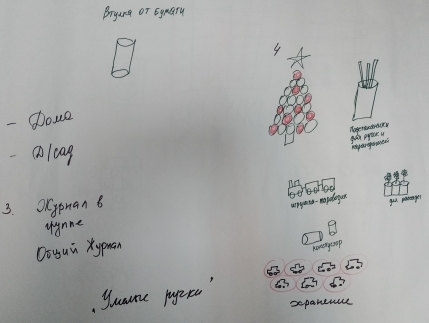 Втулка от бумаги
- Дома
- Д/сад
3. Журнал в
группе
Общий Журнал
„Умелые ручки"
4
Подстаканники
для ручек и
карандашей
игрушка-паровозик
для рассады
конструктор
хранение